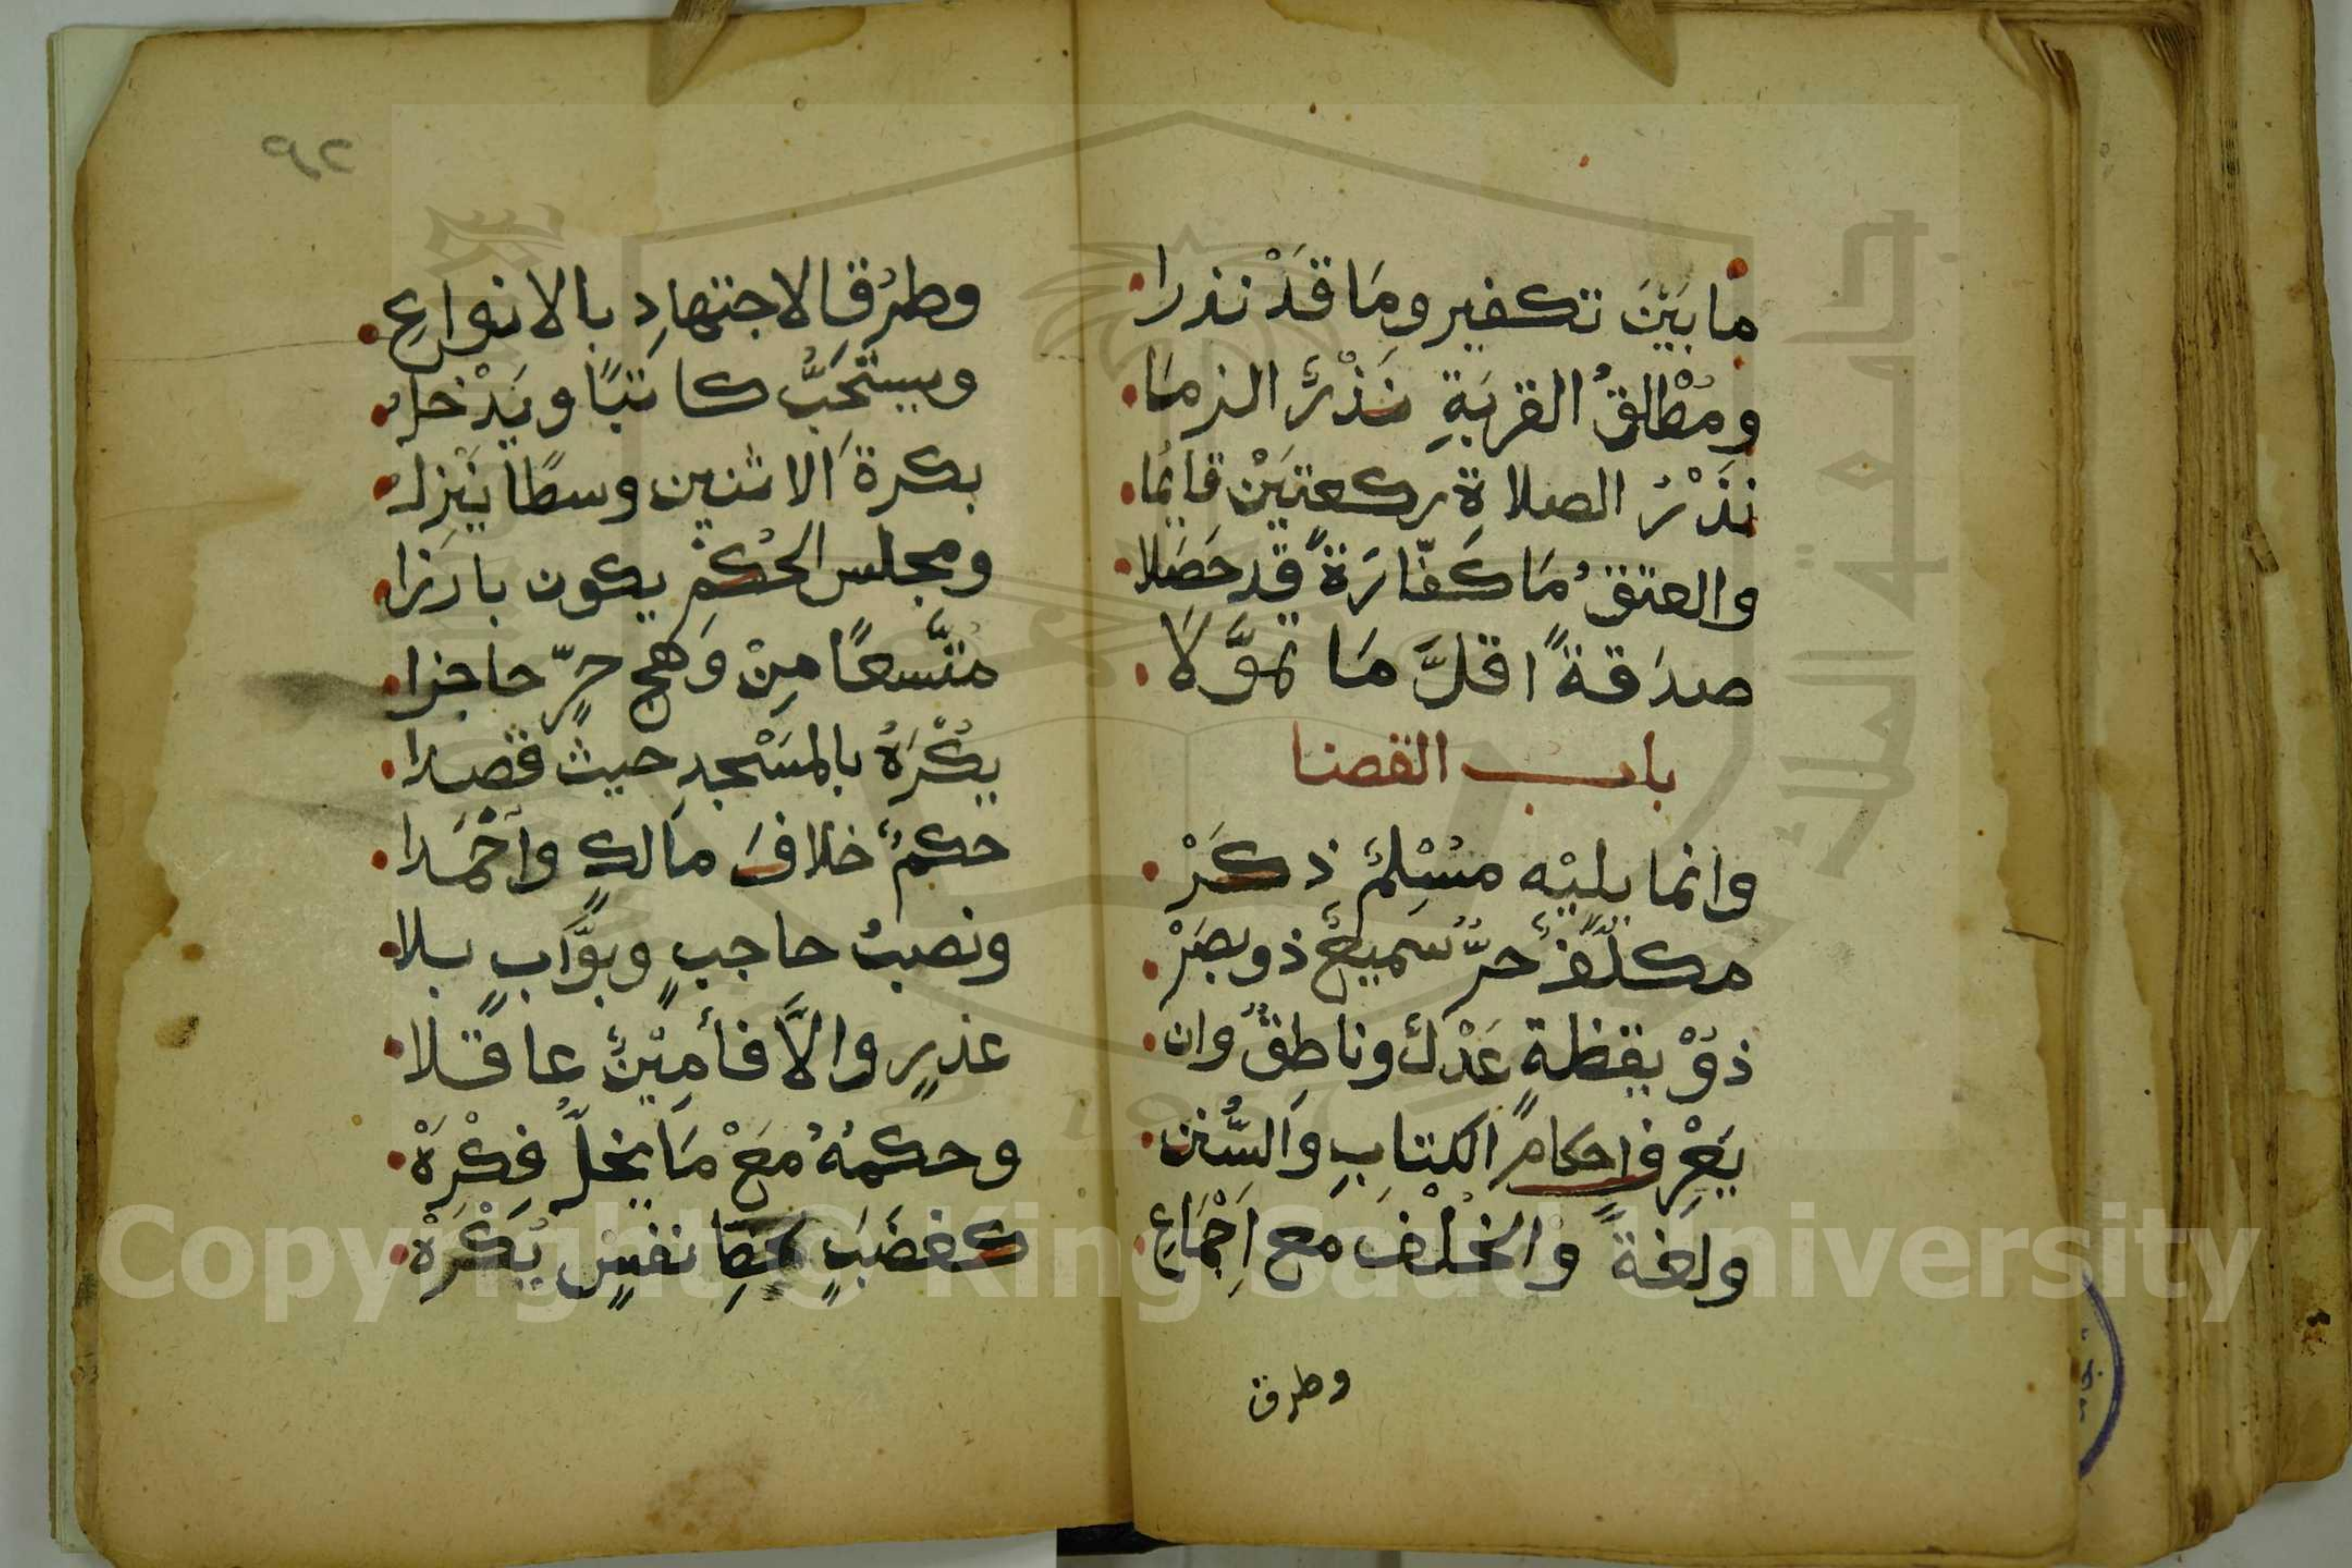 مَا بَيْنَ تكفير ومَا قَدْ نذرا
ومُطْلَقُ القربَةِ نَذْرٌ الزمَا
نَذْرُ الصلاةِ ركعتَيْن قائما
والعتقُ مَا كَفّارَةً قد حَصَلا
صدَقةً اقلَّ مَا تموَّلا
باب القضا
وانما يليْه مسْلِمٌ ذكَرْ
مكلّفٌ حرٌّ سميعٌ ذو بصَرْ
ذوْ يقظةٍ عَدْلٌ وناطِقٌ وان
يَعْرِف احكام الكِتابِ والسُّنن
ولغةً والخُلْفَ مَع اِجْمَاعِ
وطرق
وطرُقِ الاجتهادِ بالانواعِ
ويستحَبُّ كاتبًا ويَدْخل
بكرةَ الاثنين وسطًا يَنْزل
ومجلس الحُكمِ يكون بارَزا
متّسعًا مِنْ وَهج حرٍّ حاجزا
يُكْرَهُ بالمسَْجدِ حيث قصدا
حكمٌ خلافَ مالكٍ وأحْمَدا
ونصبُ حاجبٍ وبوّابٍ بلا
عذرٍ والاَّ فأمِيْنٌ عاقلا
وحكمُهُ مَعْ مَا يخلّ فِكْرَهْ
كغضَبٍ لحظِ نفسٍ يُكْرَهْ
Copyright © King Saud University